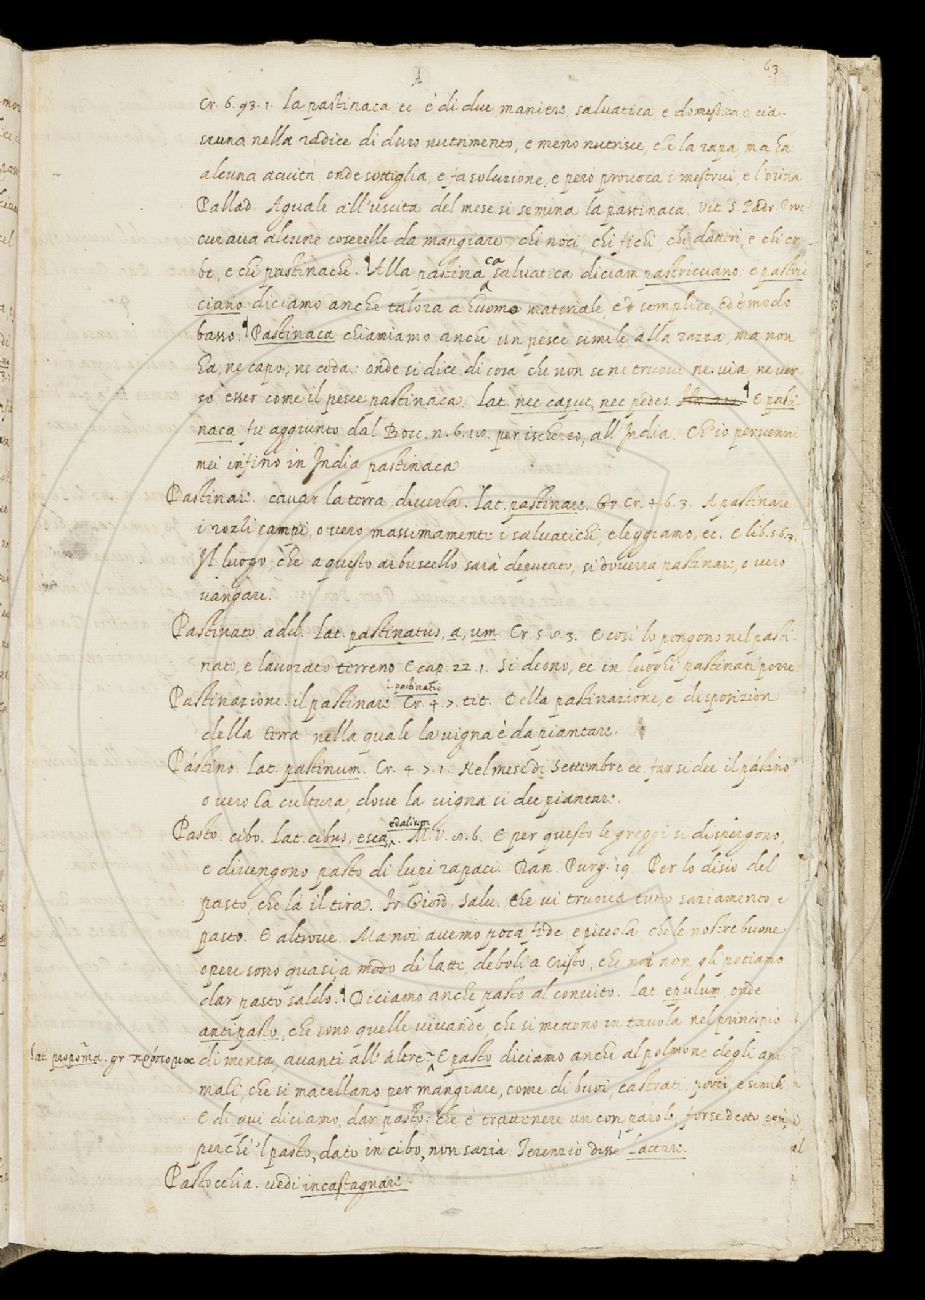 A
63
Cr. 6. 93. 1. la pastinaca, ec è di due maniere, salvatica e domestica, e cia-
scuna nella radice di duro nutrimento, e meno nutrisce, che la rapa, ma ha
alcuna acuità onde sottiglia, e fa soluzione, e però provoca i mestrui, e l'orina
Pallad. Aguale all'uscita del mese si semina la pastinaca. Vit. S. Padr. Pro-
curaua alcune coserelle da mangiare, chi noci, chi fichi, chi datteri, e chi er-
be, e chi pastinache. Alla pastinaca salvatica diciam pastricciano. e pastric-
ciano diciamo anche talora a huomo materiale, e semplice, ed è modo
basso. Pastinaca chiamiamo anche un pesce simile alla razza, ma non
ha, ne capo, ne coda: onde si dice di cosa che non se ne truovi ne via, ne ver-
so esser come il pesce pastinaca. Lat. nec caput, nec pedes. E pasti-
naca fu aggiunto dal Bocc. n. 6. 10. per ischerzo, all'India. Ch'io pervenni
mei infino in India pastinaca
Pastinare. cavar la terra, diverla. Lat. pastinare. Cr. 4. 6. 3. A pastinare
i rozzi campi, o vero massimamente i salvatichi, eleggiamo, ec. E lib. 5. 6. 3.
Il luogo, che a questo arbuscello sarà deputato, si doverrà pastinare, o vero
vangare.
Pastinato. add. Lat. pastinatus, a, um. Cr. 5. 8. 3. E così lo pongono nel pasti-
nato, e lavorato terreno E cap. 22. 1. Si deono, ec in luoghi pastinati porre
Pastinazione. il pastinare. l. pastinatio Cr. 4. 7. tit. Della pastinazione, e disposizion
della terra nella quale la vigna è da piantare.
Pástino. Lat. pastinum. Cr. 4. 7. 1. Nel mese di Settembre ec. far si dee il pástino
o vero la cultura, dove la vigna si dee piantare.
Pasto. cibo. Lat. cibus, esca, edalium. M. V. 8. 6. E per questo le greggi si dispergono,
e divengono pasto di lupi rapaci. Dan. Purg. 19. Per lo disio del
pasto, che là il tira. Fr. Giord. Salv. Che vi truova tutto saziamento, e
pasto. E altrove. Ma noi avemo poca fede e piccola che le nostre buone
opere sono quasi a modo di latte deboli a Cristo, che noi non gli potiamo
dar pasto saldo. Diciamo anche pasto al convito. Lat. epulum onde
antipasto, che sono quelle vivande, che si mettono in tavola nel principio
lat. propoma. gr πρόπομα
di mensa, avanti all'altre E pasto diciamo anche al polmone degli ani-
mali, che si macellano per mangiare, come di buoi, castrati, porci, e simili
E di qui diciamo, dar pasto: che è trattenere un con parole, forse detto così
perche 'l pasto, dato in cibo, non sazia. Terenzio disse Lactare.
Pastocchia. vedi incastagnare.